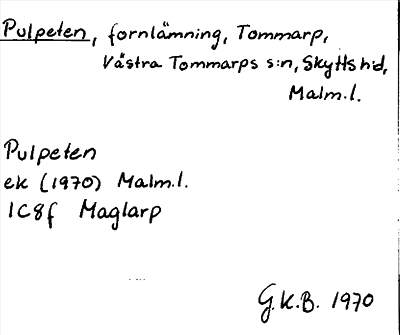 Pulpeten, fornlämning, Tommarp,
Västra Tommarps s:n, Skytts hd,
Malm.l.
Pulpeten
ek (1970) Malm.l.
1C8f Maglarp
G.K.B. 1970